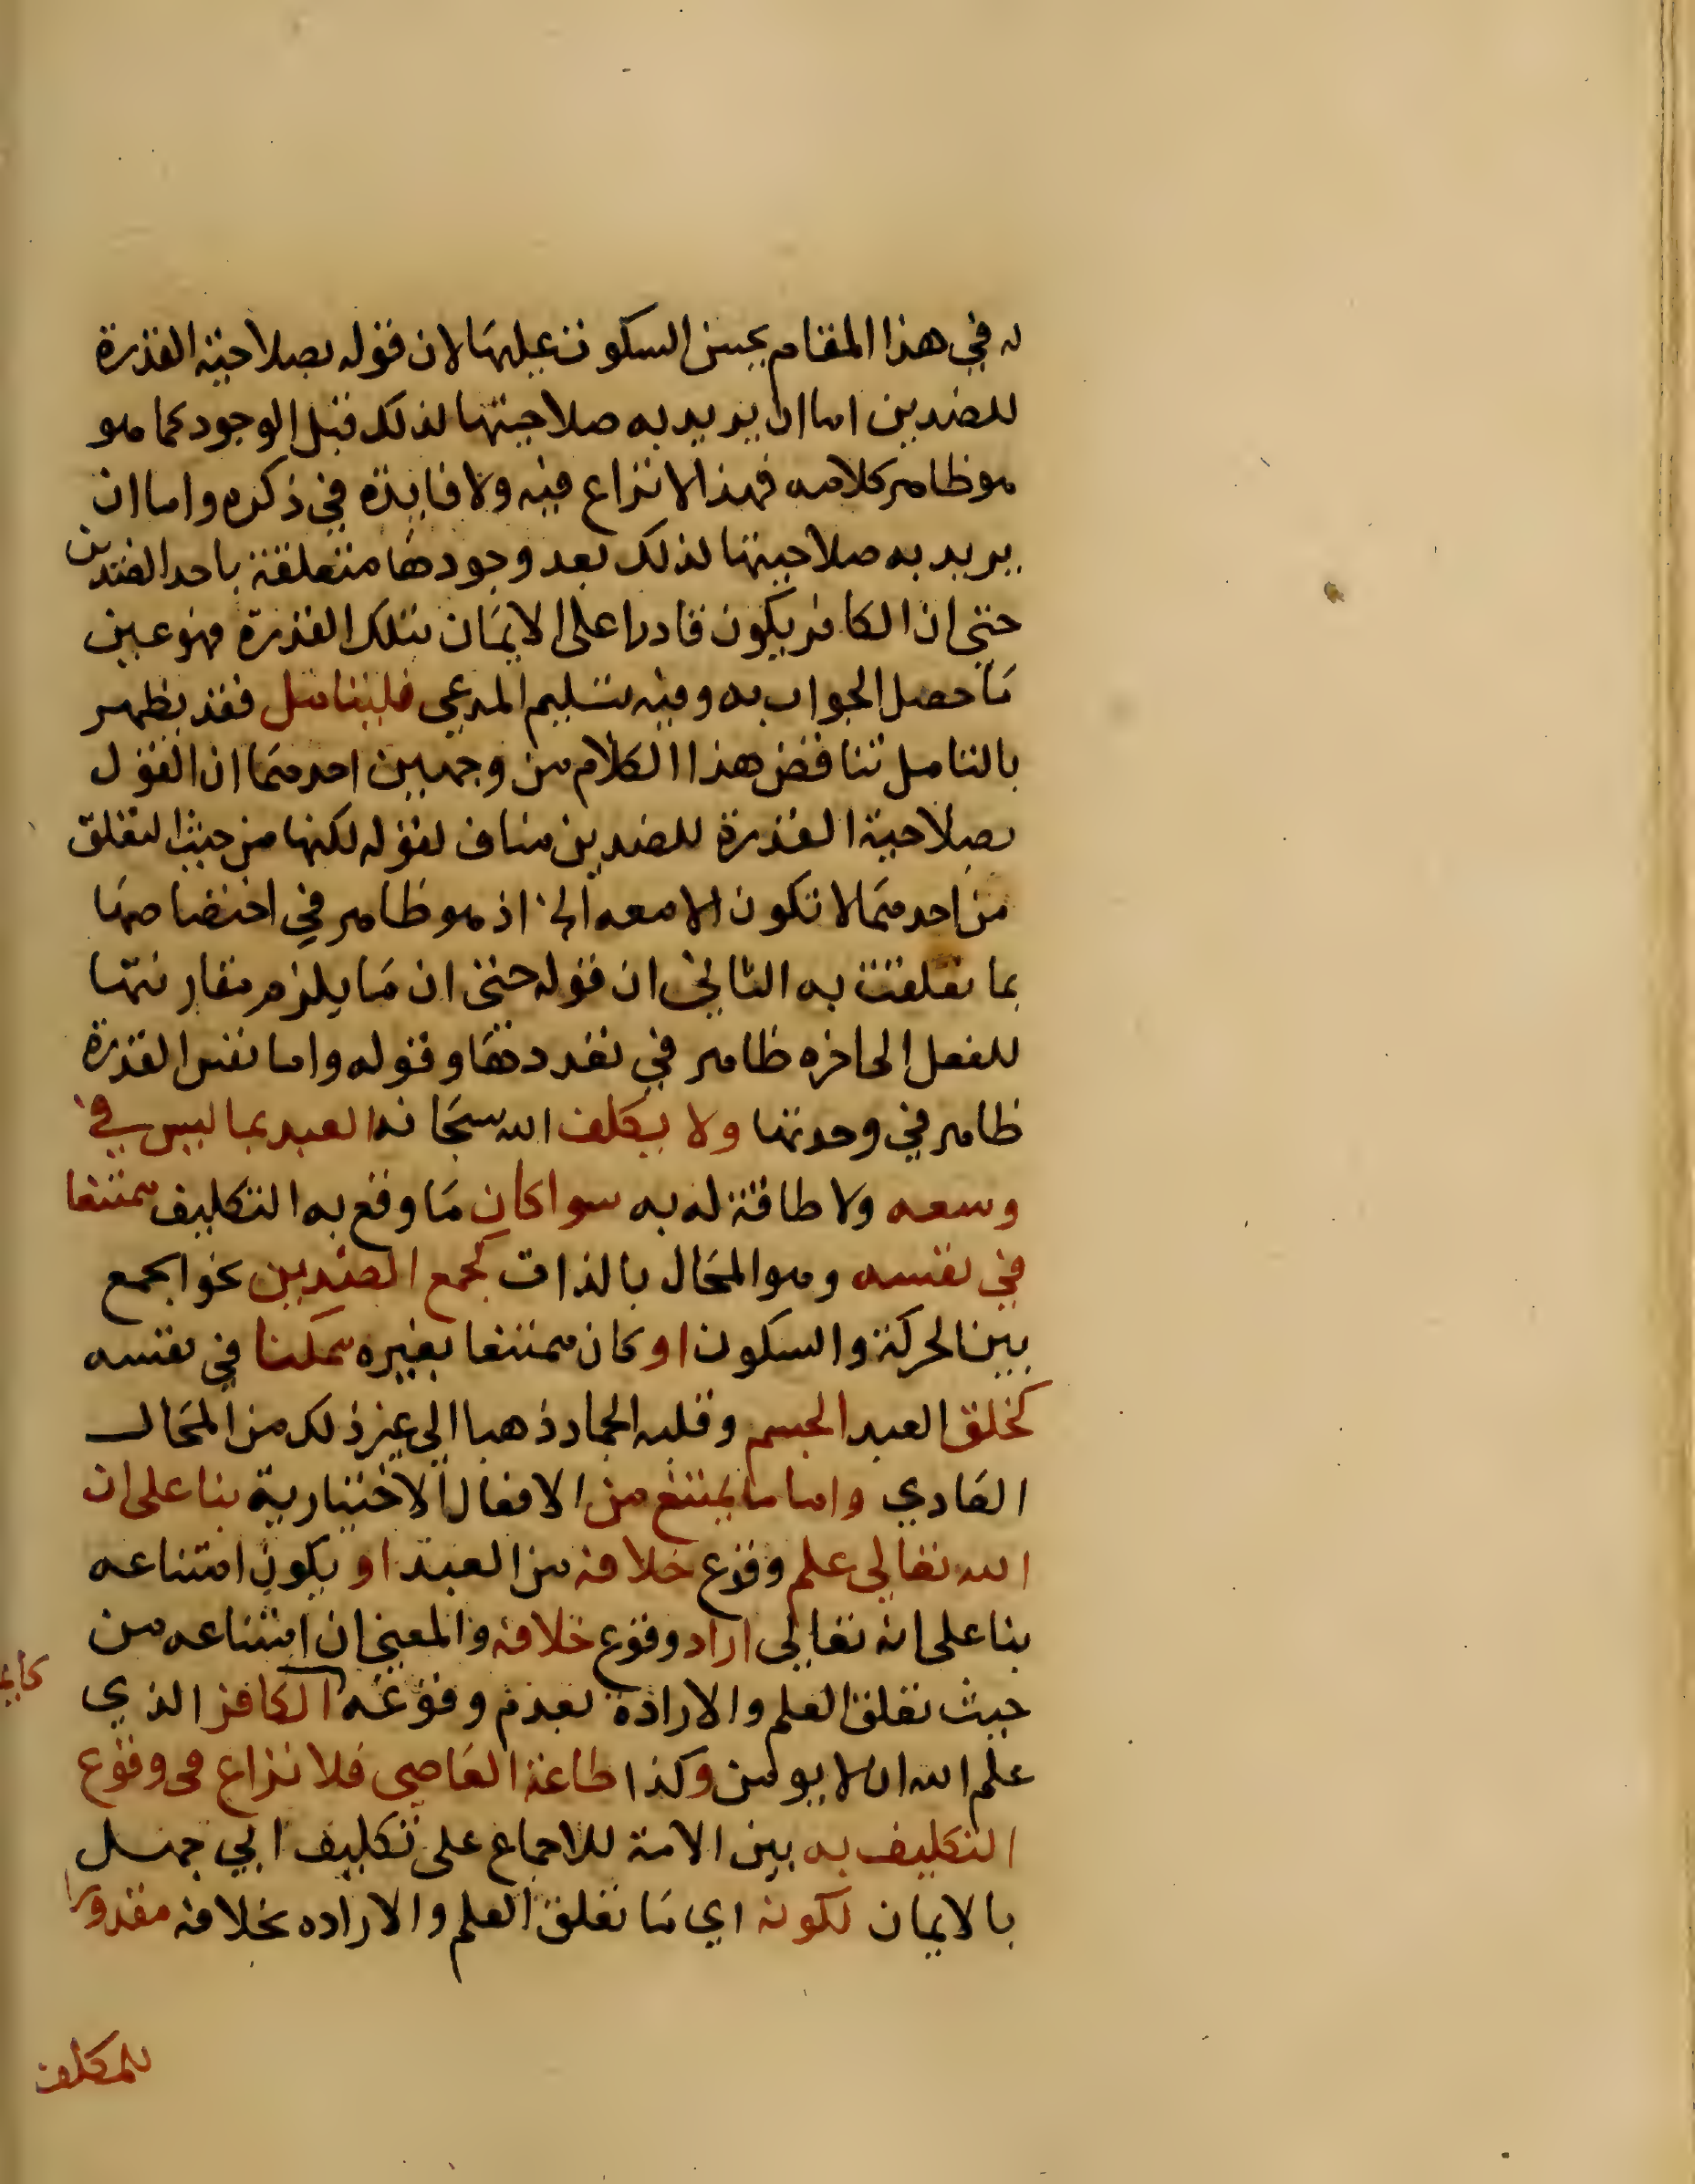 له في هذا المقام يحسن السكوت عليها لان قوله بصلاحية القدرة
للضدين اما ان يريد به صلاحيتها لذلك قبل الوجود كما هو
هو ظاهر كلامه فهذا لا نزاع فيه ولا فايدة في ذكره واما ان
يريد به صلاحيتها لذلك بعد وجودها متعلقة باحد الضدين
حتى ان الكافر يكون قادرا على الايمان بتلك القدرة فهو عين
ما حصل الجواب به وفيه تسليم المدعي فليتامل فقد يظهر
بالتامل تناقض هذا الكلام من وجهين احدهما ان القول
بصلاحية القدرة للضدين مناف لقوله لكنها من حيث التعلق
من احدهما لا تكون الا معه الخ اذ هو ظاهر في اختصاصها
بما تعلقت به الثاني ان قوله حتى ان ما يلزم مقارنتها
للفعل الى اخره ظاهر في تعددها وقوله واما نفس القدرة
ظاهر في وحدتها ولا يكلف الله سبحانه العبد بما ليس في
وسعه ولا طاقة له به سوا كان ما وقع به التكليف ممتنعا
في نفسه وهو المحال بالذات كجمع الضدين نحو الجمع
بين الحركة والسكون او كان ممتنعا بغيره ممكنا في نفسه
كخلق العبد الجسم وقلبه الجماد ذهبا الى غير ذلك من المحال
العادي واما ما يمتنع من الافعال الاختيارية بنا على ان
الله تعالى علم وقوع خلافه من العبد او يكون امتناعه
بنا على انه تعالى اراد وقوع خلافه والمعنى ان امتناعه من
حيث تعلق العلم والارادة بعدم وقوعه الكافر الذي
علم الله ان لا يومن وكذا طاعة العاصي فلا نزاع في وقوع
التكليف به بين الامة للاجماع على تكليف ابي جهل
بالايمان لكونه اي ما تعلق العلم والاراده بخلافه مقدورا
للمكلف